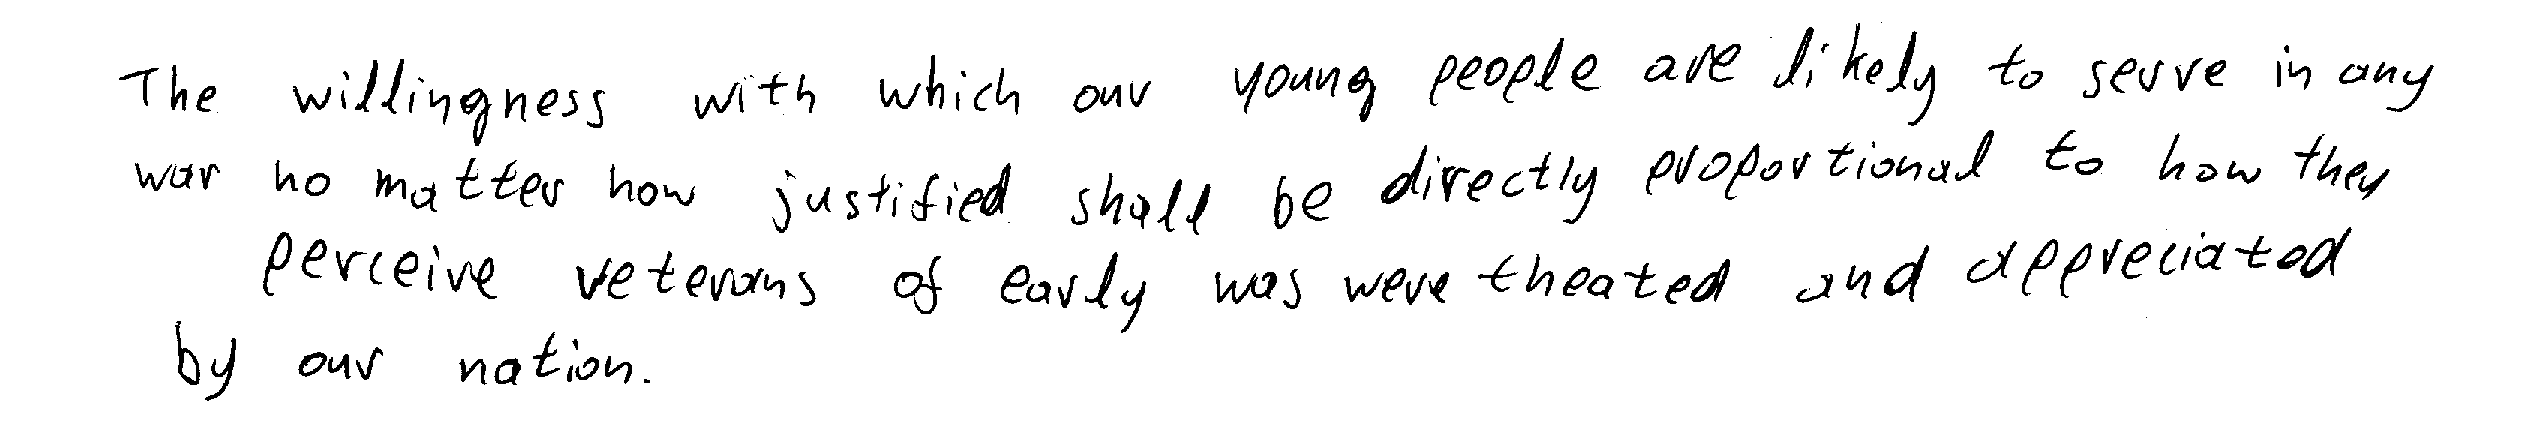 The willingness with which our young people are likely to serve in any
war no matter how justified shall be directly proportional to how they
perceive veterans of early was were theated and appreciated
by our nation.